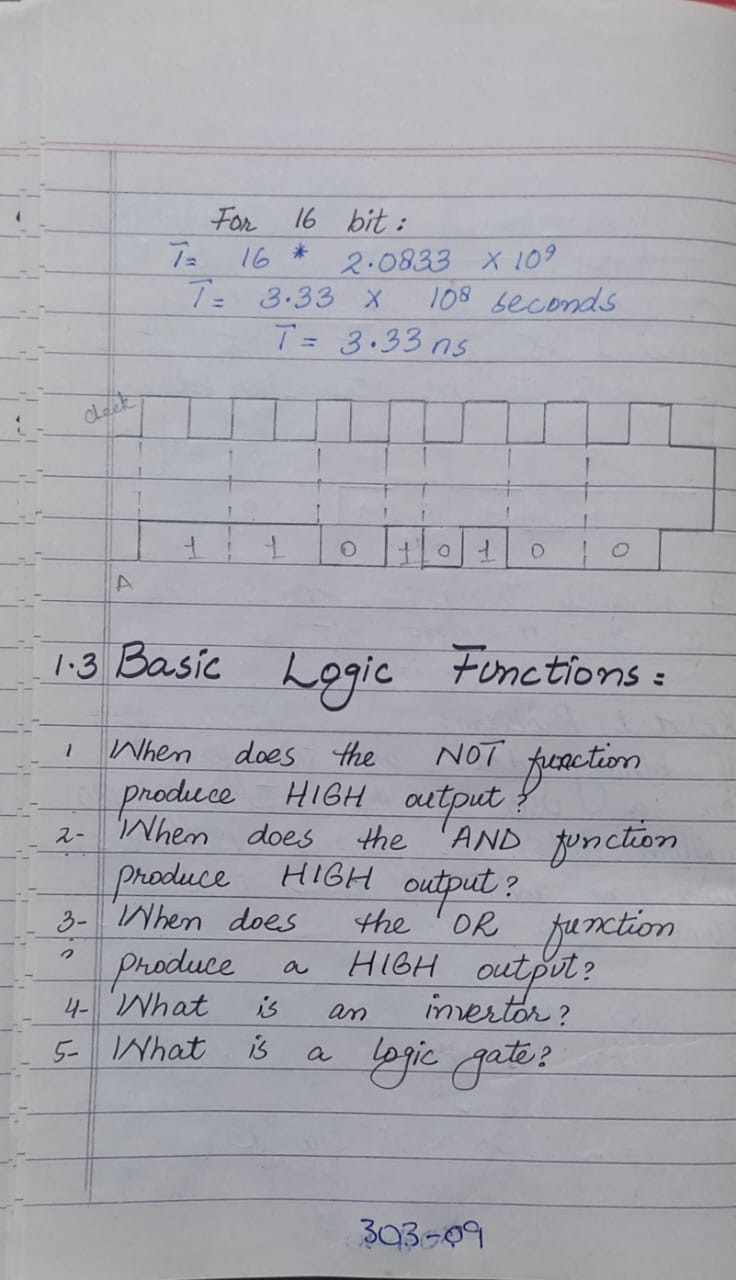 For 16 bit:
T = 16 * 2.0833 × 10⁹
T = 3.33 × 10⁸ seconds
T = 3.33 ns
clock
1 1 0 1 0 1 0 0
A
1.3 Basic Logic Functions:
1 When does the NOT function
produce HIGH output?
2- When does the AND function
produce HIGH output?
3- When does the OR function
produce a HIGH output?
4- What is an invertor?
5- What is a logic gate?
303-09